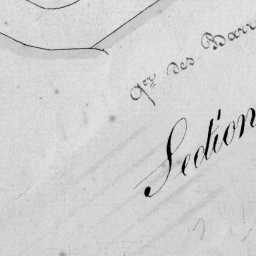 Qer des Barr
Section